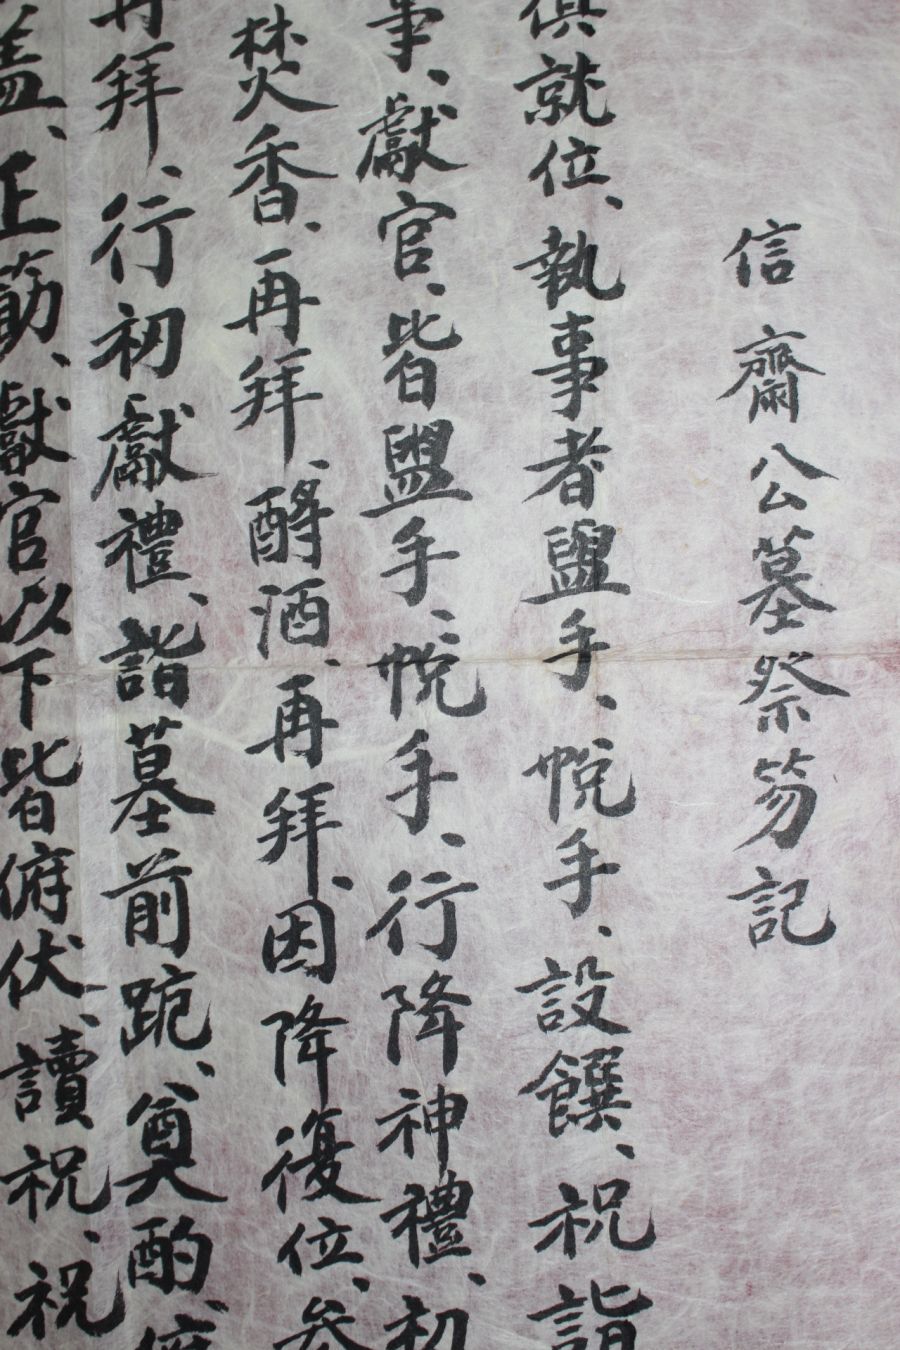 信齋公墓祭笏記
俱就位、執事者盥手、帨手、設饌、祝詣
事、獻官、皆盥手、帨手、行降神禮、初
焚香、再拜、酹酒、再拜、因降復位、參
再拜、行初獻禮、詣墓前跪、奠酌、俯
盖、正筯、獻官以下皆俯伏、讀祝、祝